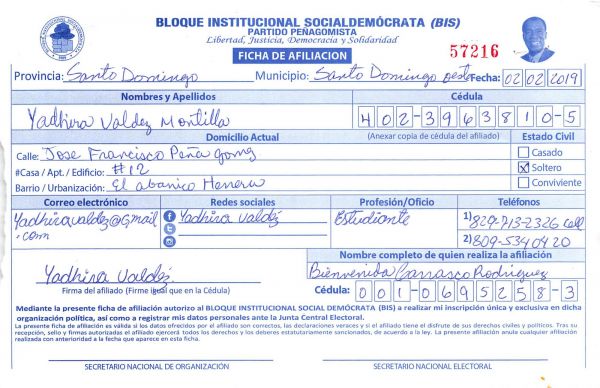 BLOQUE INSTITUCIONAL SOCIALDEMÓCRATA (BIS)
PARTIDO PEÑAGOMISTA
Libertad, Justicia, Democracia y Solidaridad
FICHA DE AFILIACION
57216
Provincia: Santo Domingo Municipio: Santo Domingo oeste Fecha: 02/02/2019
Nombres y Apellidos Cédula
Yadhira Valdez Montilla 402-3963810-5
Domicilio Actual (Anexar copia de cédula del afiliado) Estado Civil
Calle: Jose Francisco Peña gomez Casado
#Casa / Apt. / Edificio: #12 X Soltero
Barrio / Urbanización: El abanico Herrera Conviviente
Correo electrónico Redes sociales Profesión/Oficio Teléfonos
Yadhiravaldez@gmail Yadhira Valdéz Estudiante 1) 829-713-2326 Cell
.com 2) 809-534 04 20
Nombre completo de quien realiza la afiliación
Yadhira Valdez Bienvenida Carrasco Rodriguez
Firma del afiliado (Firme igual que en la Cédula) Cédula: 001-0695258-3
Mediante la presente ficha de afiliación autorizo al BLOQUE INSTITUCIONAL SOCIAL DEMÓCRATA (BIS) a realizar mi inscripción única y exclusiva en dicha
organización política, así como a registrar mis datos personales ante la Junta Central Electoral.
La presente ficha de afiliación es válida si los datos ofrecidos por el afiliado son correctos, las declaraciones veraces y si el afiliado tiene el disfrute de sus derechos civiles y políticos. Tras su
recepción, sello y firmas autorizadas el afiliado ejercerá todos los derechos y los deberes estatutariamente sancionados, de acuerdo a la ley. La presente afiliación anula cualquier afiliación
realizada con anterioridad a la fecha que aparece en esta ficha.
SECRETARIO NACIONAL DE ORGANIZACIÓN SECRETARIO NACIONAL ELECTORAL